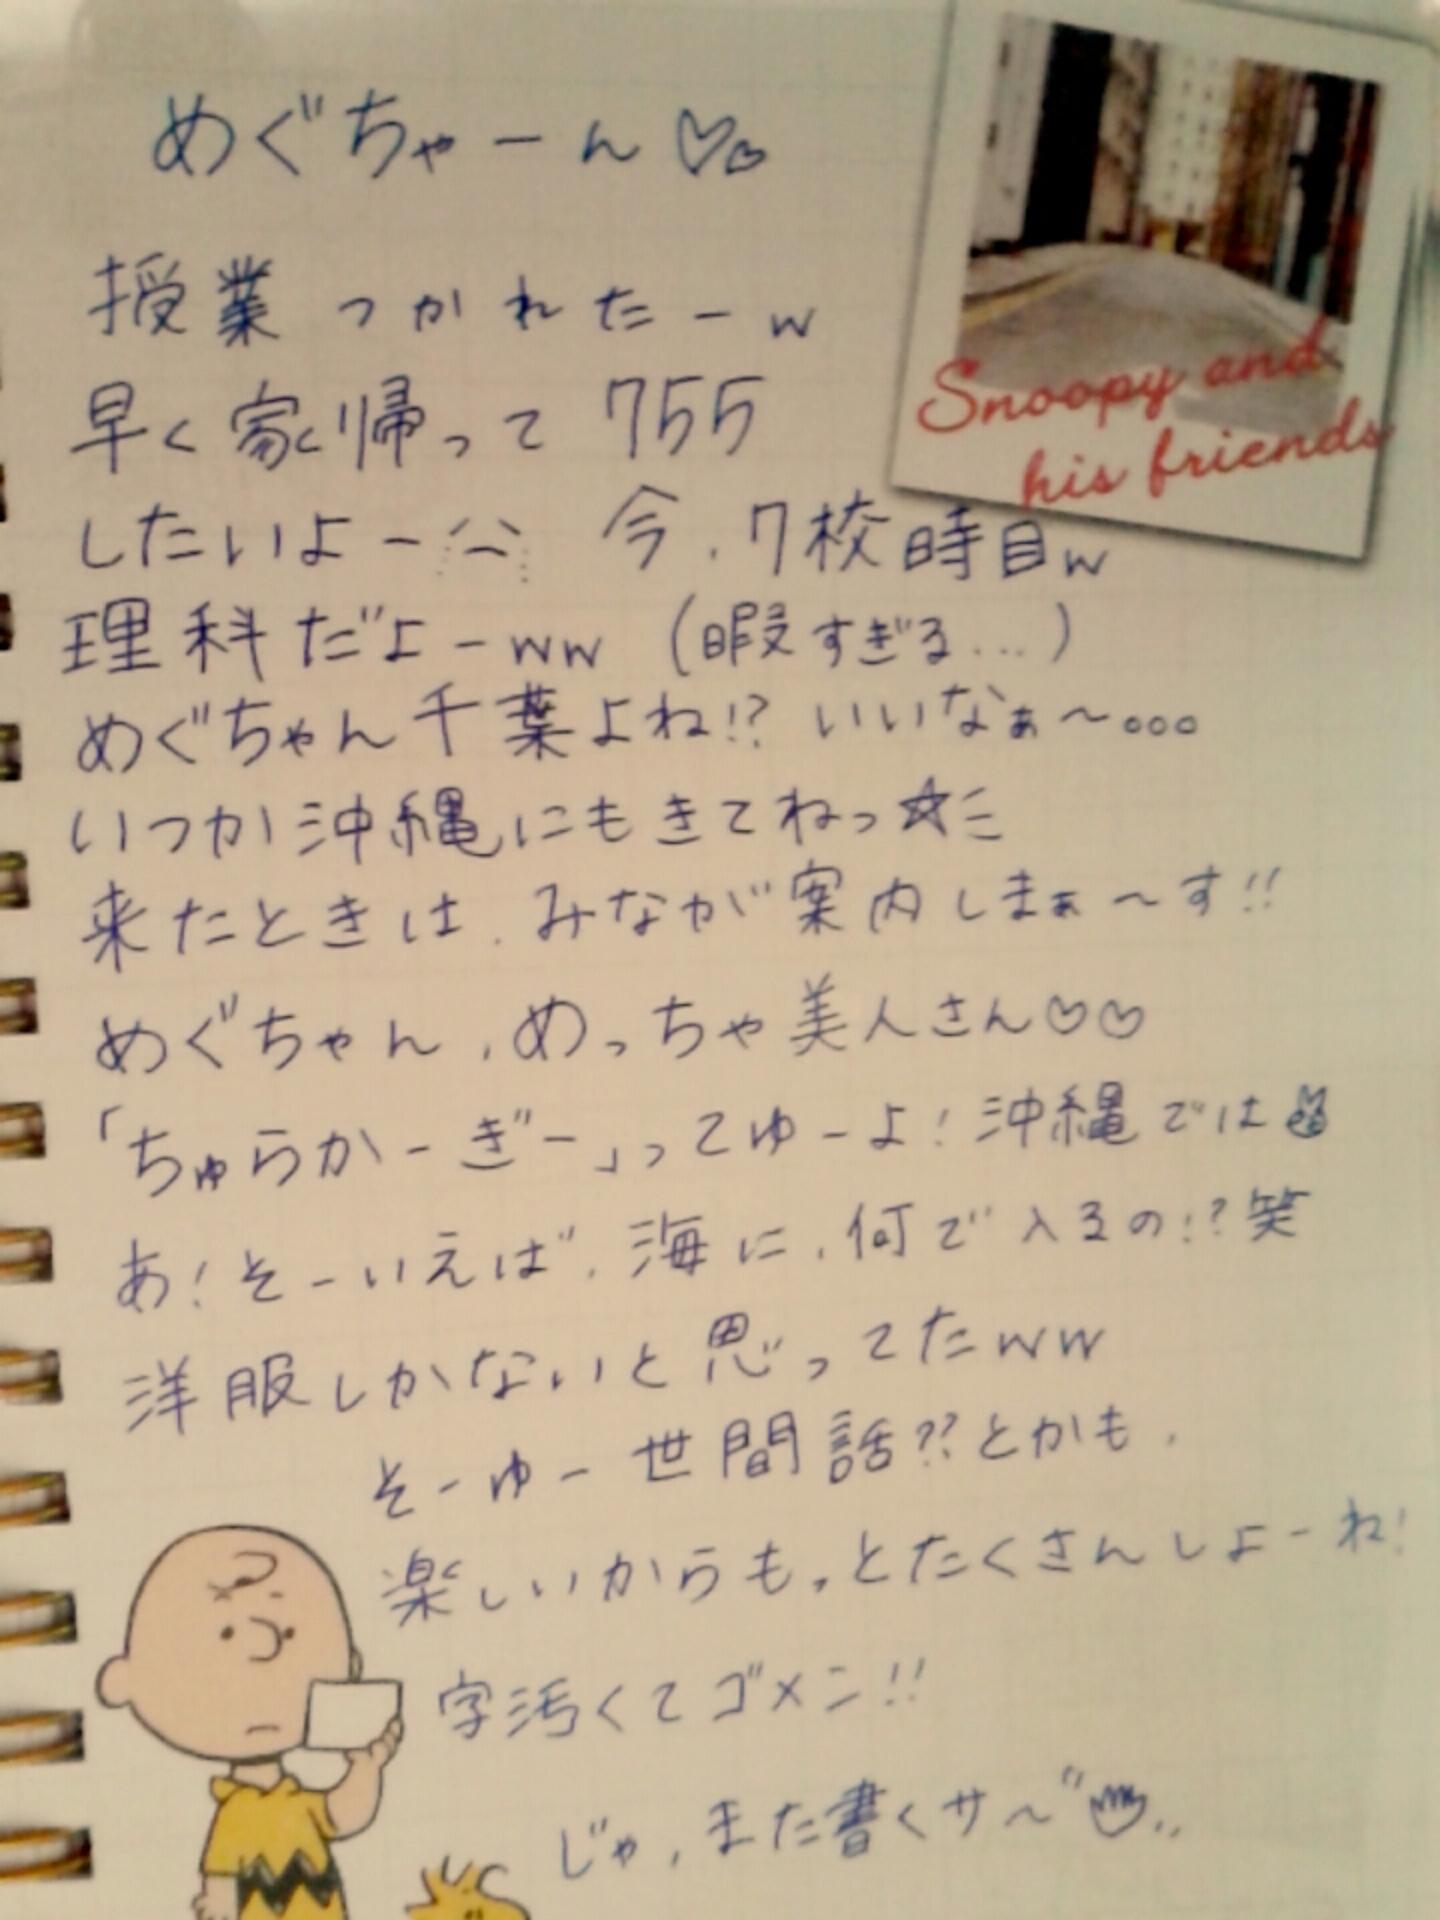 めぐちゃーん♡♡
Snoopy and
his friends
授業つかれたーw
早く家帰って 755
したいよー 今、7校時目w
理科だよーww (暇すぎる…)
めぐちゃん千葉よね!? いいなぁ〜。。。
いつか沖縄にもきてねっ☆ミ
来たときは、みなが案内しまぁ〜す!!
めぐちゃん、めっちゃ美人さん♡♡
「ちゅらかーぎー」ってゆーよ! 沖縄では
あ! そーいえば、海に、何で入るの!? 笑
洋服しかないと思ってたww
そーゆー世間話??とかも、
楽しいからもっとたくさんしよーね!
字汚くてゴメン!!
じゃ、また書くサ〜"